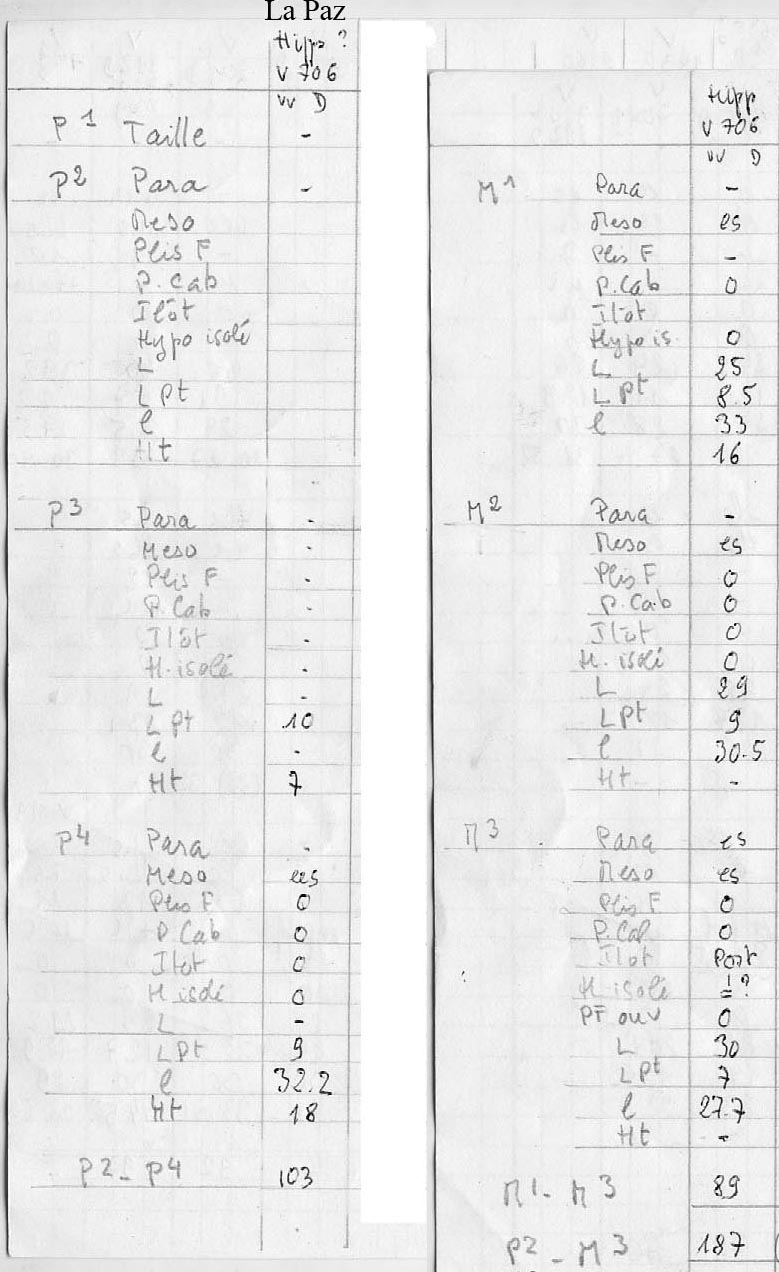 La Paz
Hipp ?
V 706
vv D
P1 Taille -
P2 Para -
Meso
Plis F
P. Cab
Ilôt
Hypo isolé
L
L Pt
l
Ht
P3 Para -
Meso -
Plis F -
P. Cab -
Ilôt -
H. isolé -
L -
L Pt 10
l -
Ht 7
P4 Para -
Meso es
Plis F 0
P. Cab 0
Ilot 0
H isolé 0
L -
L Pt 9
l 32.2
Ht 18
P2 - P4 103
Hipp
V 706
vv D
M1 Para -
Meso es
Plis F -
P. Cab 0
Ilot
Hypo is. 0
L 25
L Pt 8.5
l 33
16
M2 Para -
Meso es
Plis F 0
P. Cab 0
Ilôt 0
H. isolé 0
L 29
L Pt 9
l 30.5
Ht -
M3 Para es
Meso es
Plis F 0
P. Cab 0
Ilot Post
H isolé ?
PF ouv 0
L 30
L Pt 7
l 27.7
Ht -
M1 - M3 89
P2 - M3 187